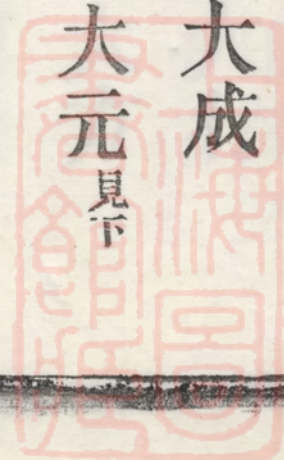 大成
大元見下